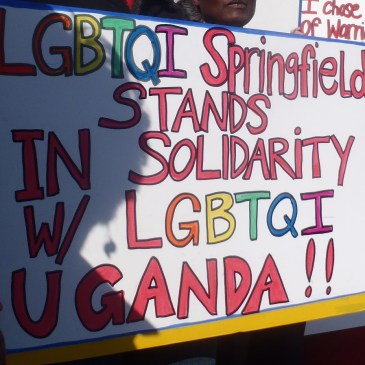 LGBTQI Springfield
STANDS
IN SOLIDARITY
W/ LGBTQI
UGANDA!!
I chase
of Warri